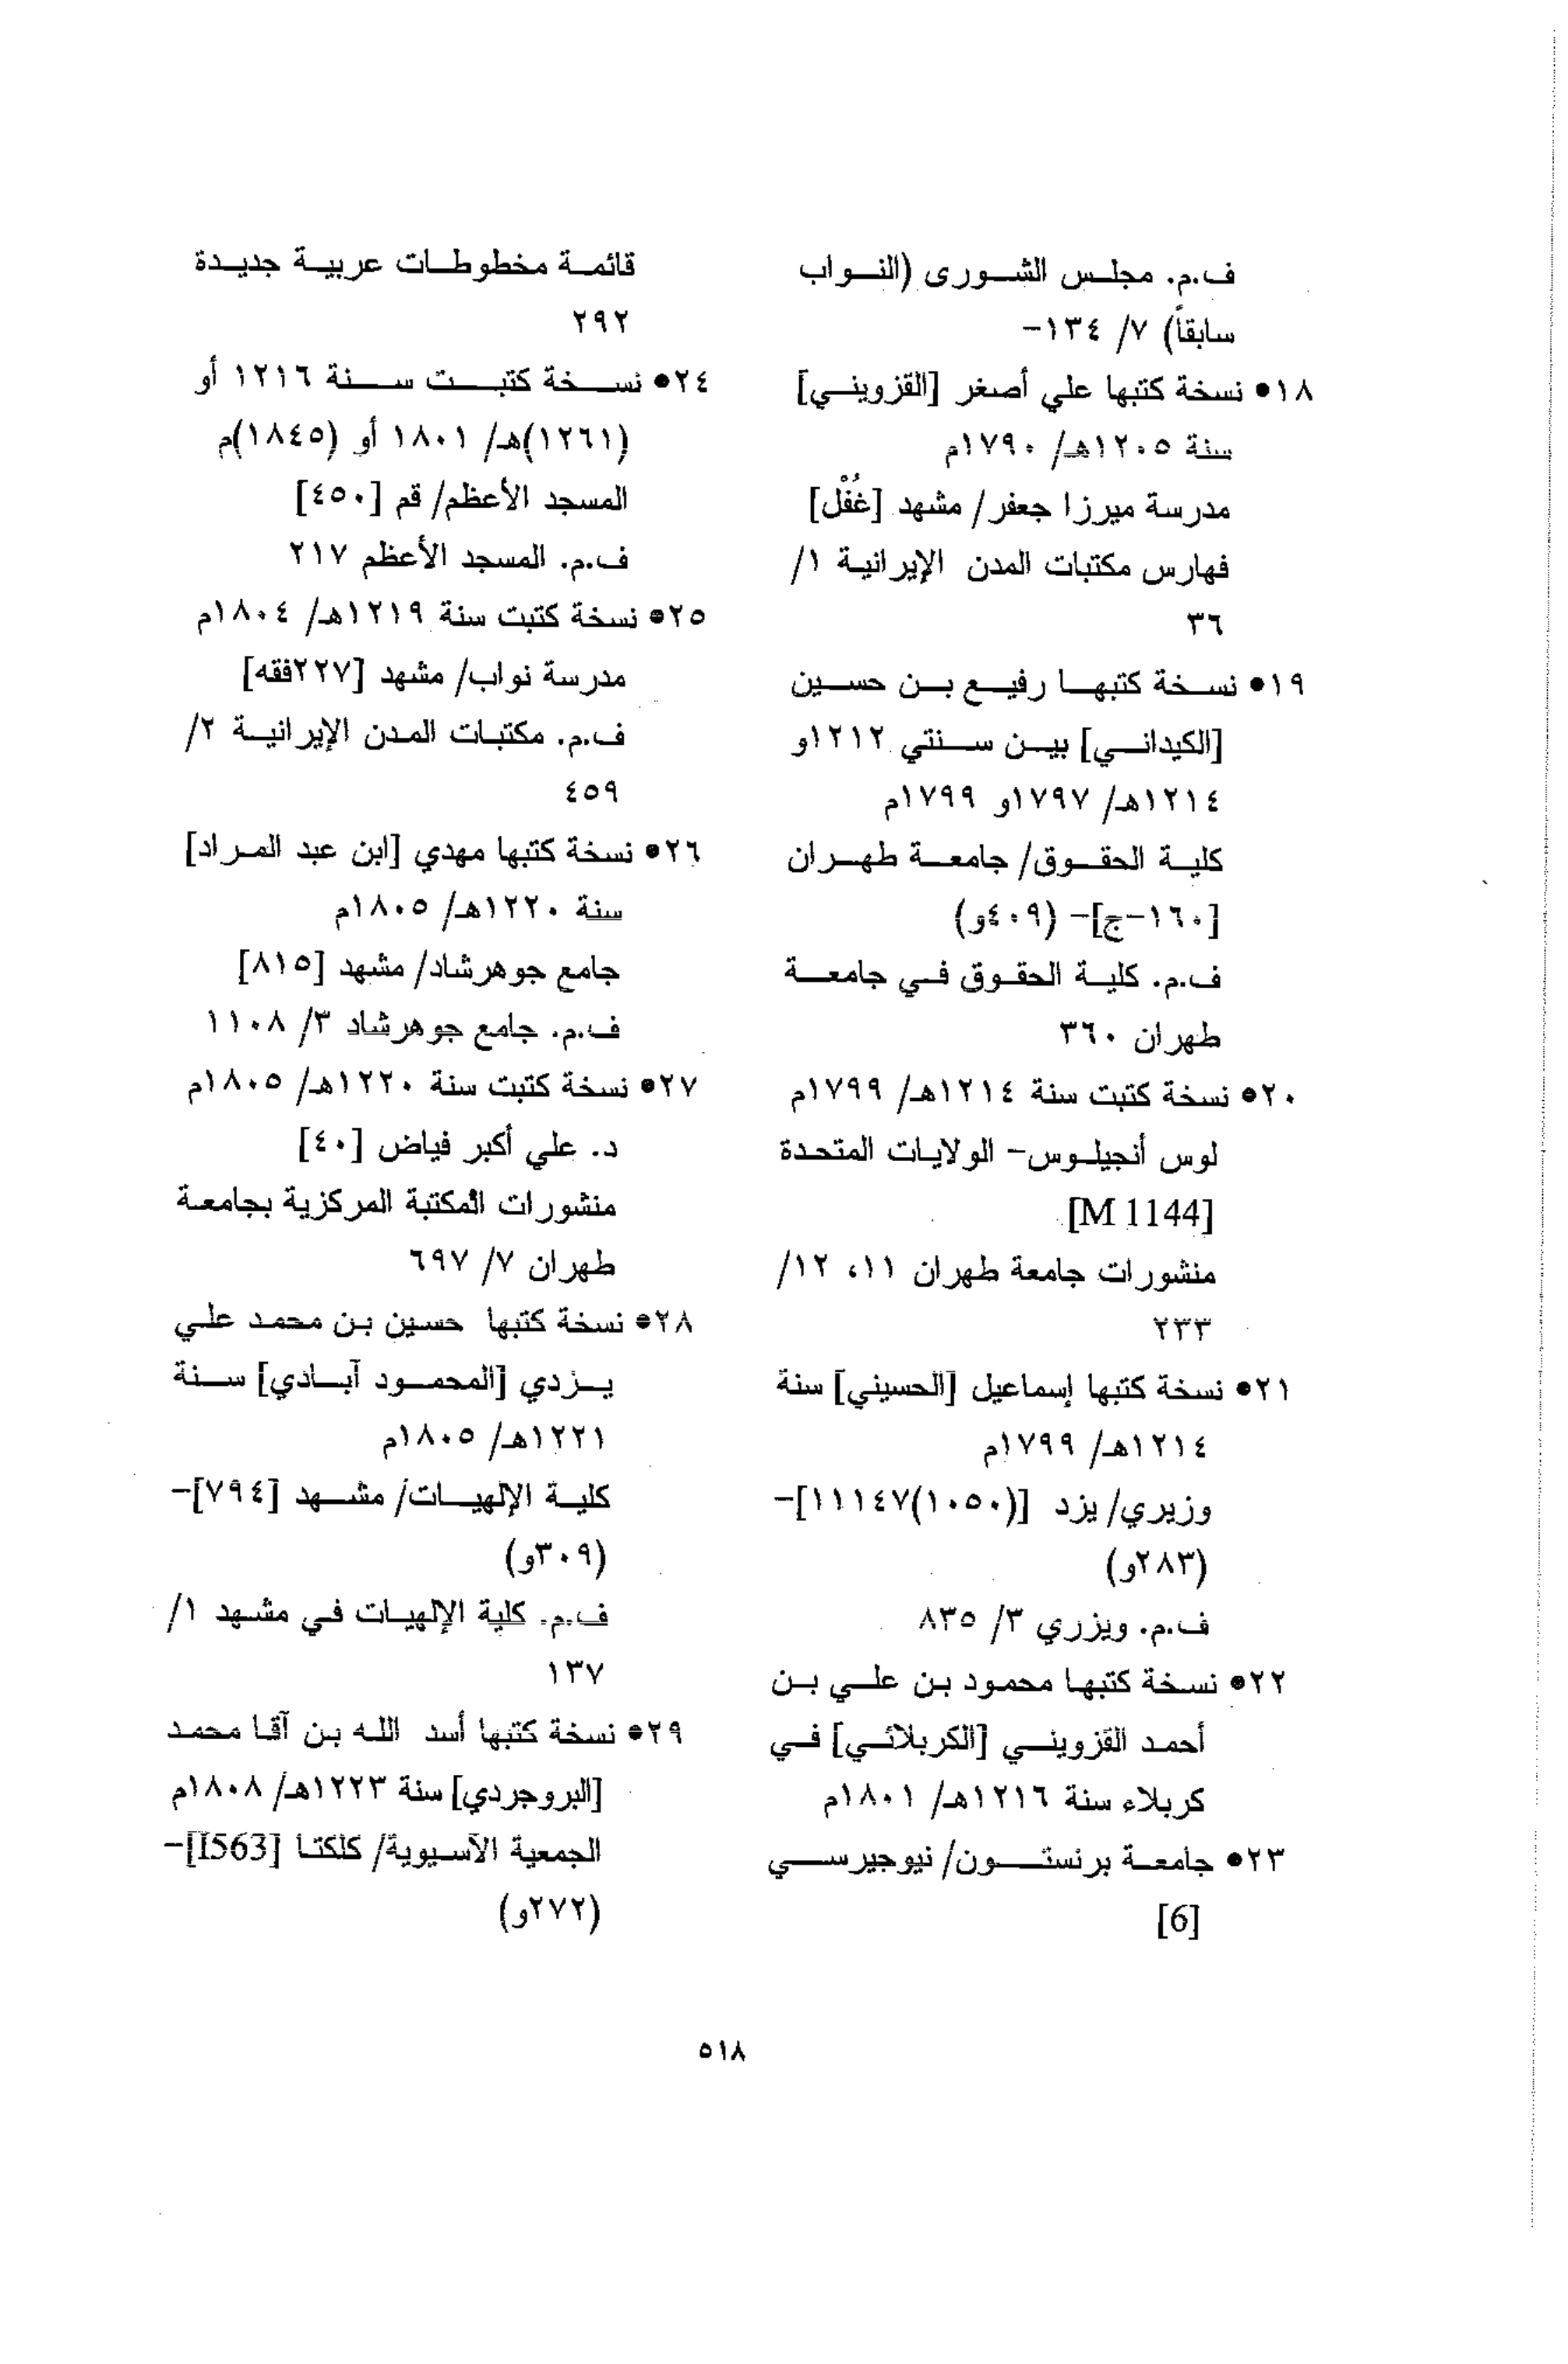 ف.م. مجلس الشورى (النواب
سابقاً) ٧/ ١٣٤-
١٨● نسخة كتبها علي أصغر [القزويني]
سنة ١٢٠٥هـ/ ١٧٩٠م
مدرسة ميرزا جعفر/ مشهد [غُفْل]
فهارس مكتبات المدن الإيرانية ١/
٣٦
١٩● نسخة كتبها رفيع بن حسين
[الكيداني] بين سنتي ١٢١٢و
١٢١٤هـ/ ١٧٩٧و ١٧٩٩م
كلية الحقوق/ جامعة طهران
[١٦٠-ج]- (٤٠٩و)
ف.م. كلية الحقوق في جامعة
طهران ٣٦٠
٢٠● نسخة كتبت سنة ١٢١٤هـ/ ١٧٩٩م
لوس أنجيلوس- الولايات المتحدة
[M 1144]
منشورات جامعة طهران ١١، ١٢/
٢٣٣
٢١● نسخة كتبها إسماعيل [الحسيني] سنة
١٢١٤هـ/ ١٧٩٩م
وزيري/ يزد [(١٠٥٠)١١١٤٧]-
(٢٨٣و)
ف.م. ويزري ٣/ ٨٣٥
٢٢● نسخة كتبها محمود بن علي بن
أحمد القزويني [الكربلائي] في
كربلاء سنة ١٢١٦هـ/ ١٨٠١م
٢٣● جامعة برنستون/ نيوجيرسي
[6]
قائمة مخطوطات عربية جديدة
٢٩٢
٢٤● نسخة كتبت سنة ١٢١٦ أو
(١٢٦١)هـ/ ١٨٠١ أو (١٨٤٥)م
المسجد الأعظم/ قم [٤٥٠]
ف.م. المسجد الأعظم ٢١٧
٢٥● نسخة كتبت سنة ١٢١٩هـ/ ١٨٠٤م
مدرسة نواب/ مشهد [٢٢٧فقه]
ف.م. مكتبات المدن الإيرانية ٢/
٤٥٩
٢٦● نسخة كتبها مهدي [ابن عبد المراد]
سنة ١٢٢٠هـ/ ١٨٠٥م
جامع جوهرشاد/ مشهد [٨١٥]
ف.م. جامع جوهرشاد ٣/ ١١٠٨
٢٧● نسخة كتبت سنة ١٢٢٠هـ/ ١٨٠٥م
د. علي أكبر فياض [٤٠]
منشورات المكتبة المركزية بجامعة
طهران ٧/ ٦٩٧
٢٨● نسخة كتبها حسين بن محمد علي
يزدي [المحمود آبادي] سنة
١٢٢١هـ/ ١٨٠٥م
كلية الإلهيات/ مشهد [٧٩٤]-
(٣٠٩و)
ف.م. كلية الإلهيات في مشهد ١/
١٣٧
٢٩● نسخة كتبها أسد الله بن آقا محمد
[البروجردي] سنة ١٢٢٣هـ/ ١٨٠٨م
الجمعية الآسيوية/ كلكتا [I563]-
(٢٧٢و)
٥١٨